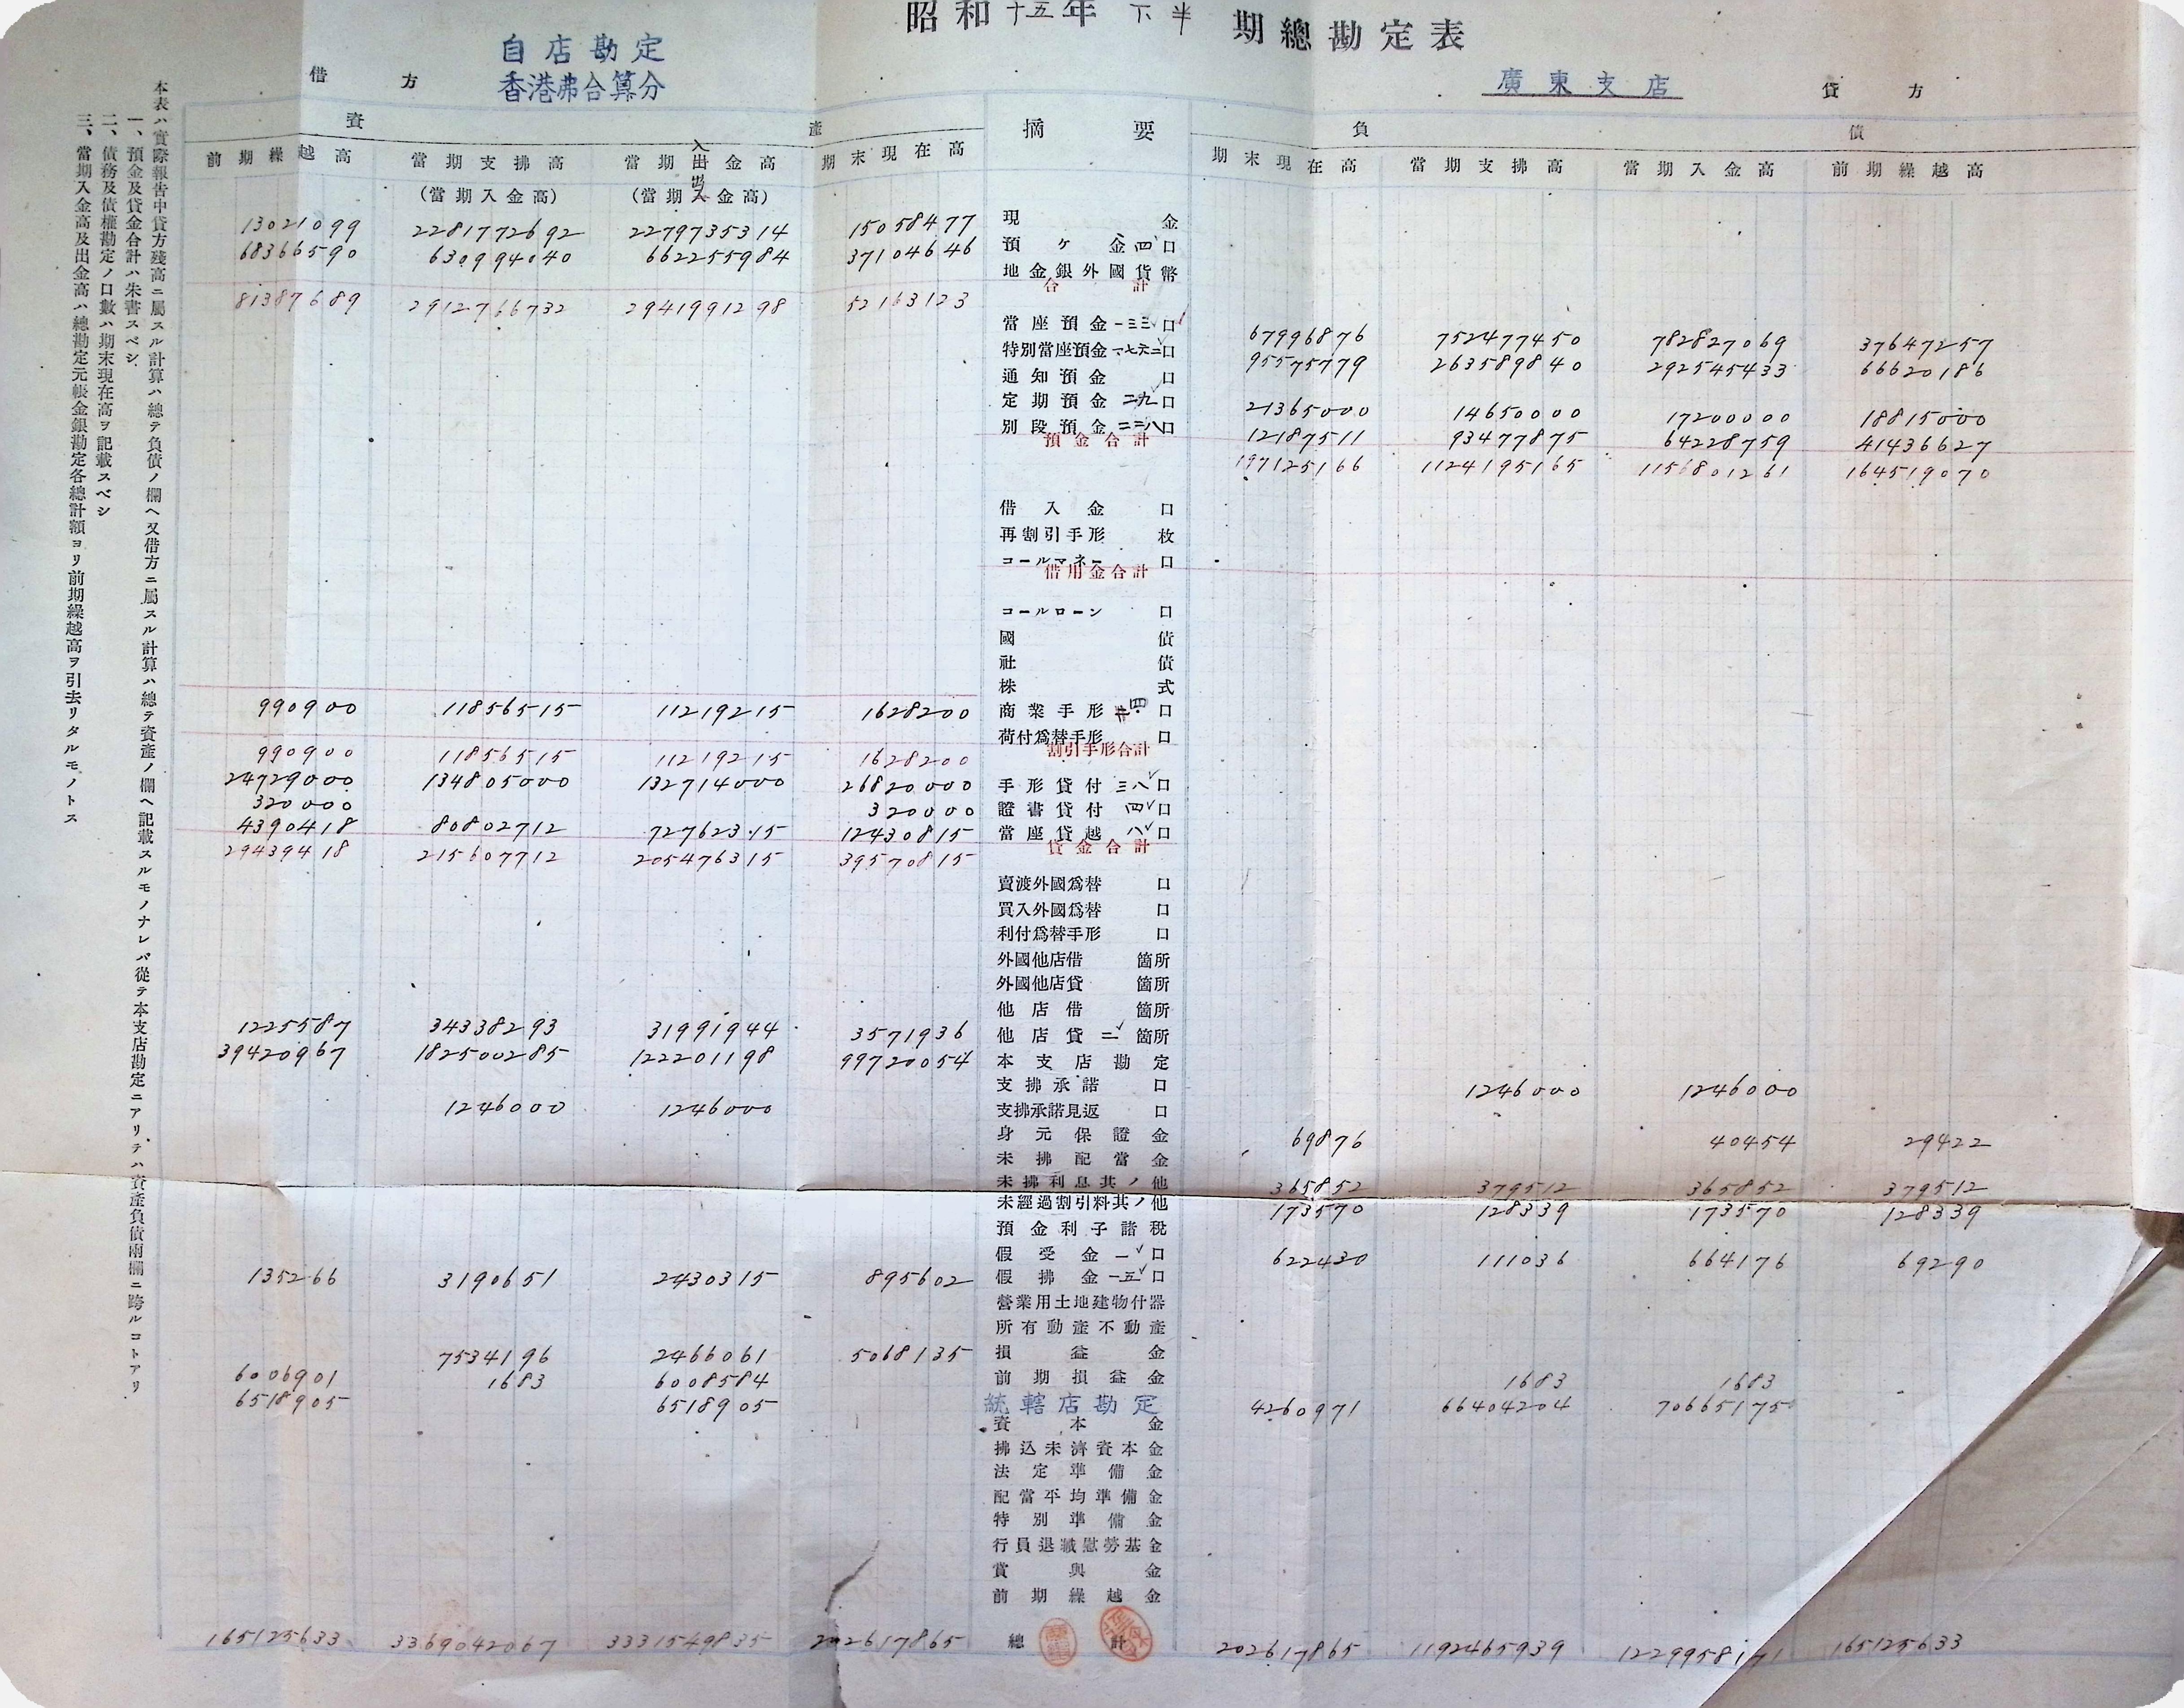 昭和十五年下半期總勘定表
自店勘定
香港弗合算分
廣東支店
借方
貸方
資產
摘要
負債
前期繰越高 當期支拂高 當期出金高 期末現在高 期末現在高 當期支拂高 當期入金高 前期繰越高
(當期入金高) (當期出金高)
13021099 2281772692 2279735314 15058477 現金
68366590 630994040 662255984 37104646 預ケ金四口
地金銀外國貨幣
81387689 2912766732 2941991298 52163123 合計
當座預金一三三口 67996876 752477450 782827069 37647257
特別當座預金一、七六二口 95575779 263589840 292545433 66620186
通知預金口
定期預金二九口 21365000 14650000 17200000 18815000
別段預金二二八口 12187511 93477875 64228759 41436627
預金合計 197125166 1124195165 1156801261 164519070
借入金口
再割引手形枚
コールマネー口
借用金合計
コールローン口
國債
社債
株式
990900 11856515 11219215 1628200 商業手形四口
荷付爲替手形口
990900 11856515 11219215 1628200 割引手形合計
24729000 134805000 132714000 26820000 手形貸付三八口
320000 320000 證書貸付四口
4390418 80802712 72762315 12430815 當座貸越八口
29439418 215607712 205476315 39570815 貸金合計
賣渡外國爲替口
買入外國爲替口
利付爲替手形口
外國他店借箇所
外國他店貸箇所
他店借箇所
1225587 34338293 31991944 3571936 他店貸二箇所
39420967 182500285 122201198 99720054 本支店勘定
支拂承諾口 1246000 1246000
1246000 1246000 支拂承諾見返口
身元保證金 69876 40454 29422
未拂配當金
未拂利息其ノ他 365852 379512 365852 379512
未經過割引料其ノ他 173570 128339 173570 128339
預金利子諸稅
假受金一口 622430 111036 664176 69290
135266 3190651 2430315 895602 假拂金一五口
營業用土地建物什器
所有動產不動產
7534196 2466061 5068135 損益金
6006901 1683 6008584 前期損益金 1683 1683
6518905 6518905 統轄店勘定 4260971 66404204 70665175
資本金
拂込未濟資本金
法定準備金
配當平均準備金
特別準備金
行員退職慰勞基金
賞與金
前期繰越金
165125633 3369042067 3331549835 202617865 總計 202617865 1192465939 1229958171 165125633
本表ハ實際報告中貸方殘高ニ屬スル計算ハ總テ負債ノ欄ヘ又借方ニ屬スル計算ハ總テ資產ノ欄ヘ記載スルモノナレバ從テ本支店勘定ニアリテハ資產負債兩欄ニ跨ルコトアリ
一、預金及貸金合計ハ朱書スベシ
二、債務及債權勘定ノ口數ハ期末現在高ヲ記載スベシ
三、當期入金高及出金高ハ總勘定元帳金銀勘定各總計額ヨリ前期繰越高ヲ引去リタルモノトス